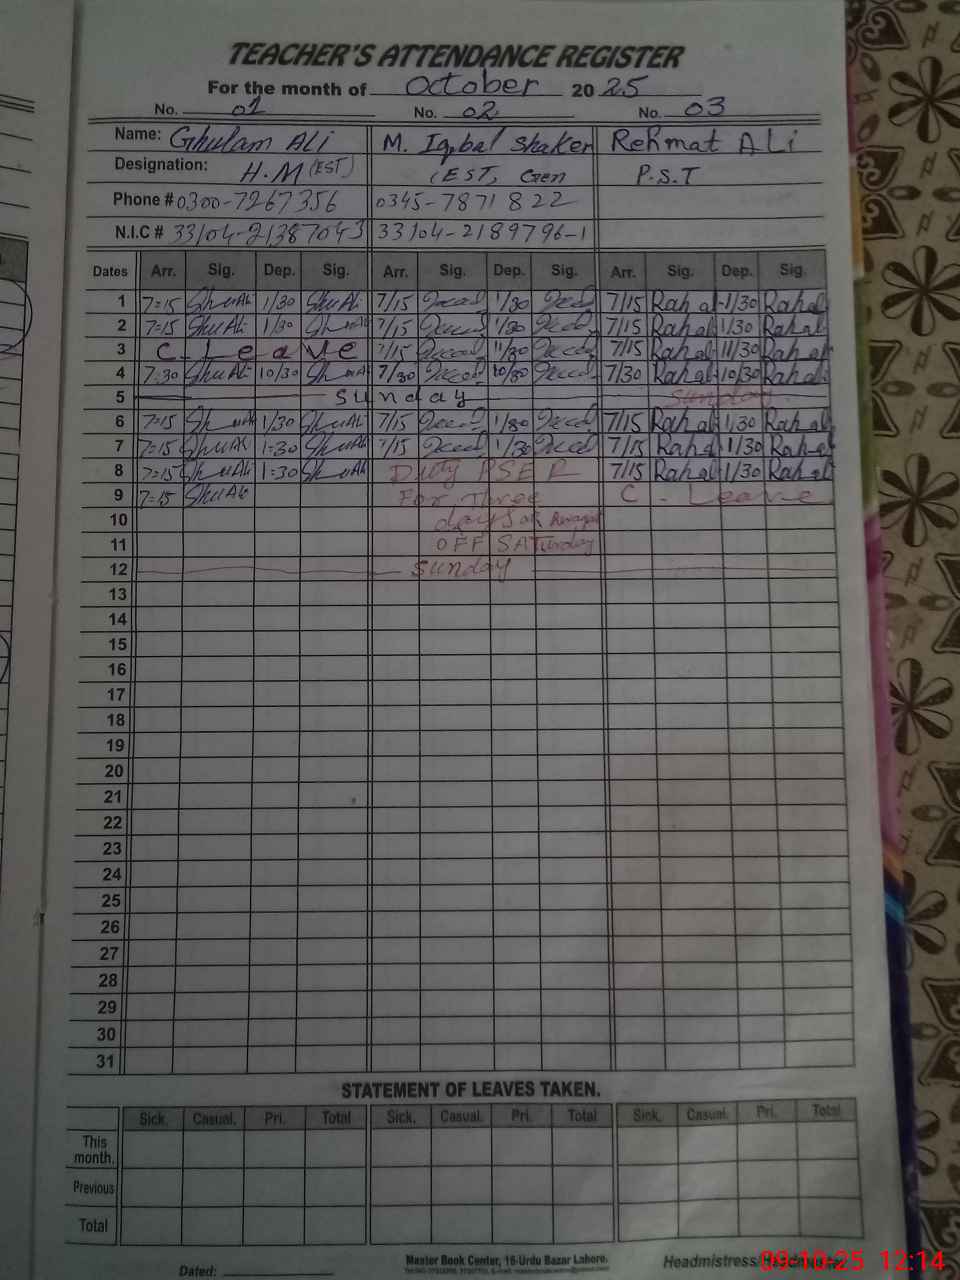 TEACHER'S ATTENDANCE REGISTER
For the month of October 20 25
No. 01 No. 02 No. 03
Name: Ghulam ALi M. Iqbal Shaker Rehmat ALi
Designation: H.M (EST) (EST, Gen P.S.T
Phone # 0300-7267356 0345-7871822
N.I.C # 33104-2189796-1
Dates Arr. Sig. Dep. Sig. Arr. Sig. Dep. Sig. Arr. Sig. Dep. Sig.
1 7=15 GhuAli 1/30 GhuAli 7/15 1/30 7/15 Rahal 1/30 Rahal
2 7=15 GhuAli 1/30 GhuAli 7/15 1/30 7/15 Rahal 1/30 Rahal
3 C. Leave 7/15 11/30 7/15 Rahal 11/30 Rahal
4 7=30 GhuAli 10/30 GhuAli 7/30 10/30 7/30 Rahal 10/30 Rahal
5 Sunday Sunday
6 7=15 GhuAli 1/30 GhuAli 7/15 1/30 7/15 Rahal 1/30 Rahal
7 7=15 GhuAli 1=30 GhuAli 7/15 1/30 7/15 Rahal 1/30 Rahal
8 7=15 GhuAli 1=30 GhuAli Duty PSER 7/15 Rahal 1/30 Rahal
9 7=15 GhuAli For Three C. Leave
10 days
11 OFF SATurday
12 Sunday
13
14
15
16
17
18
19
20
21
22
23
24
25
26
27
28
29
30
31
STATEMENT OF LEAVES TAKEN.
Sick. Casual. Pri. Total Sick. Casual. Pri. Total Sick. Casual. Pri. Total
This month.
Previous
Total
Master Book Center, 16-Urdu Bazar Lahore.
Dated: Headmistress/
09-10-25 12:14